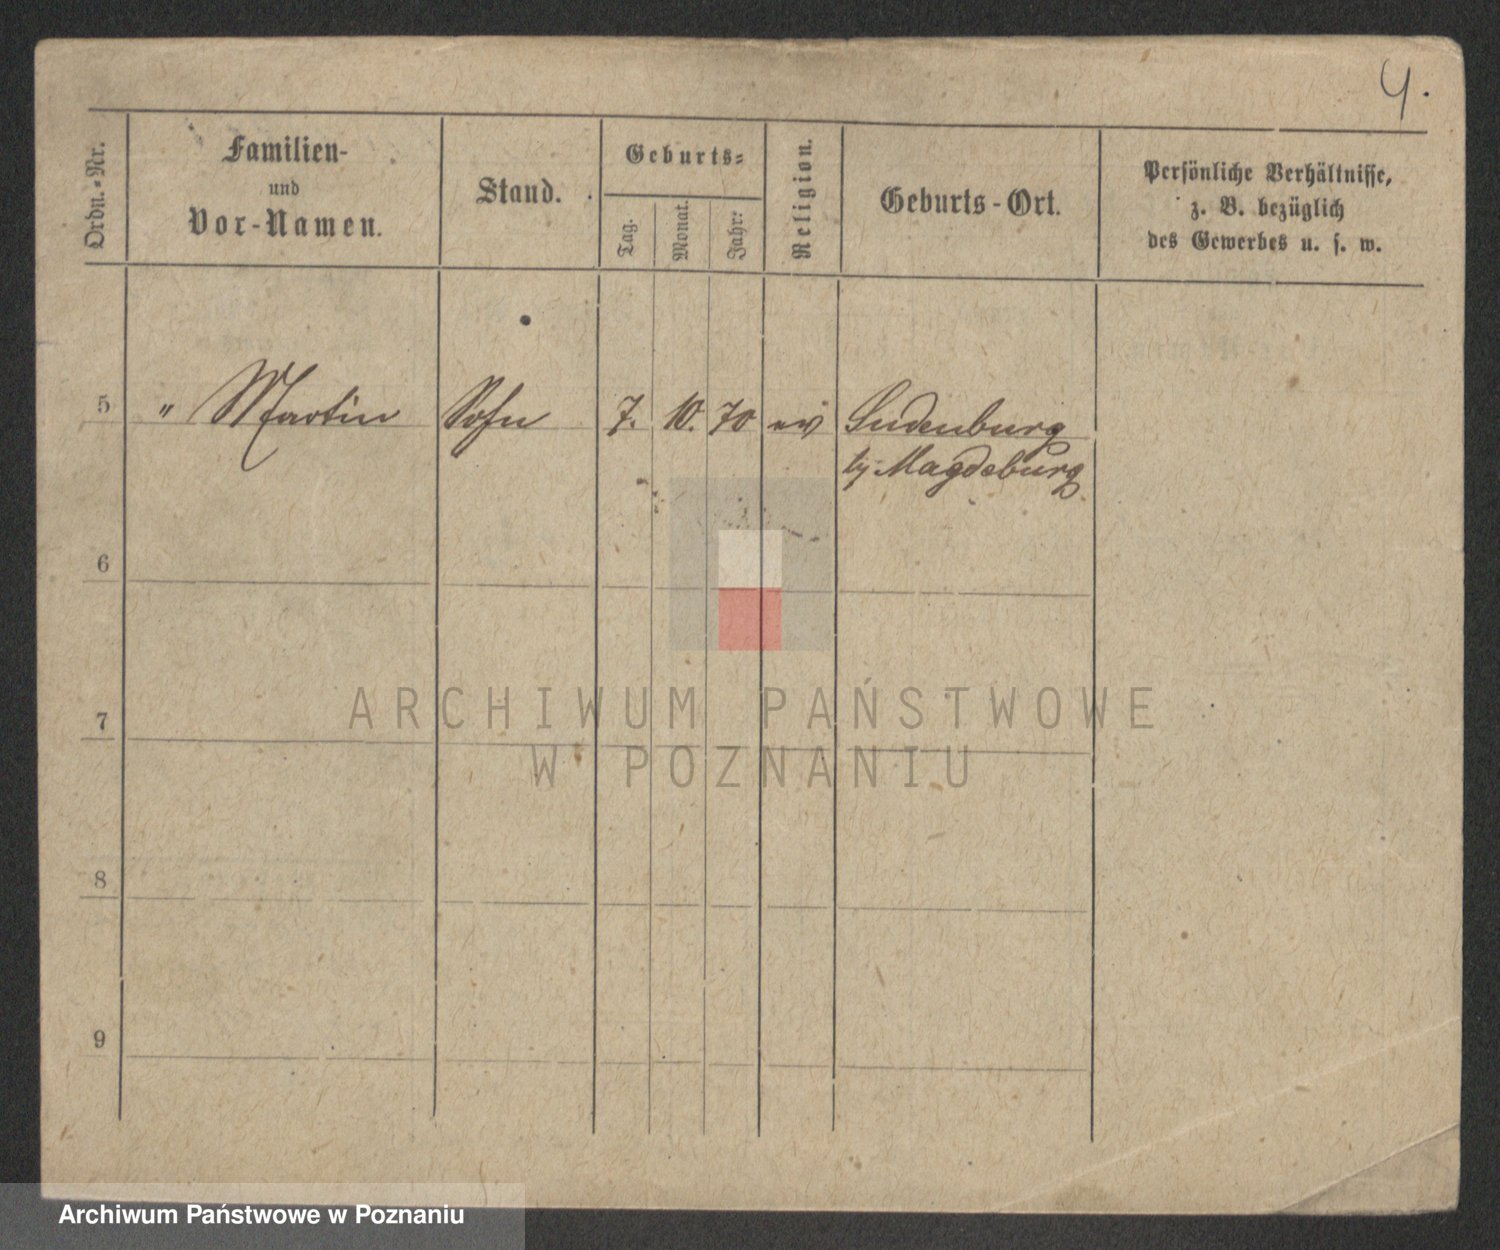 4.
Ordn.-Nr.
Familien-
und
Vor-Namen.
Stand.
Geburts-
Tag.
Monat.
Jahr.
Religion.
Geburts-Ort.
Persönliche Verhältnisse,
z. B. bezüglich
des Gewerbes u. s. w.
5 " Martin Sohn 7. 10. 70 ev Sudenburg
by Magdeburg
6
7
8
9
ARCHIWUM PAŃSTWOWE
W POZNANIU
Archiwum Państwowe w Poznaniu